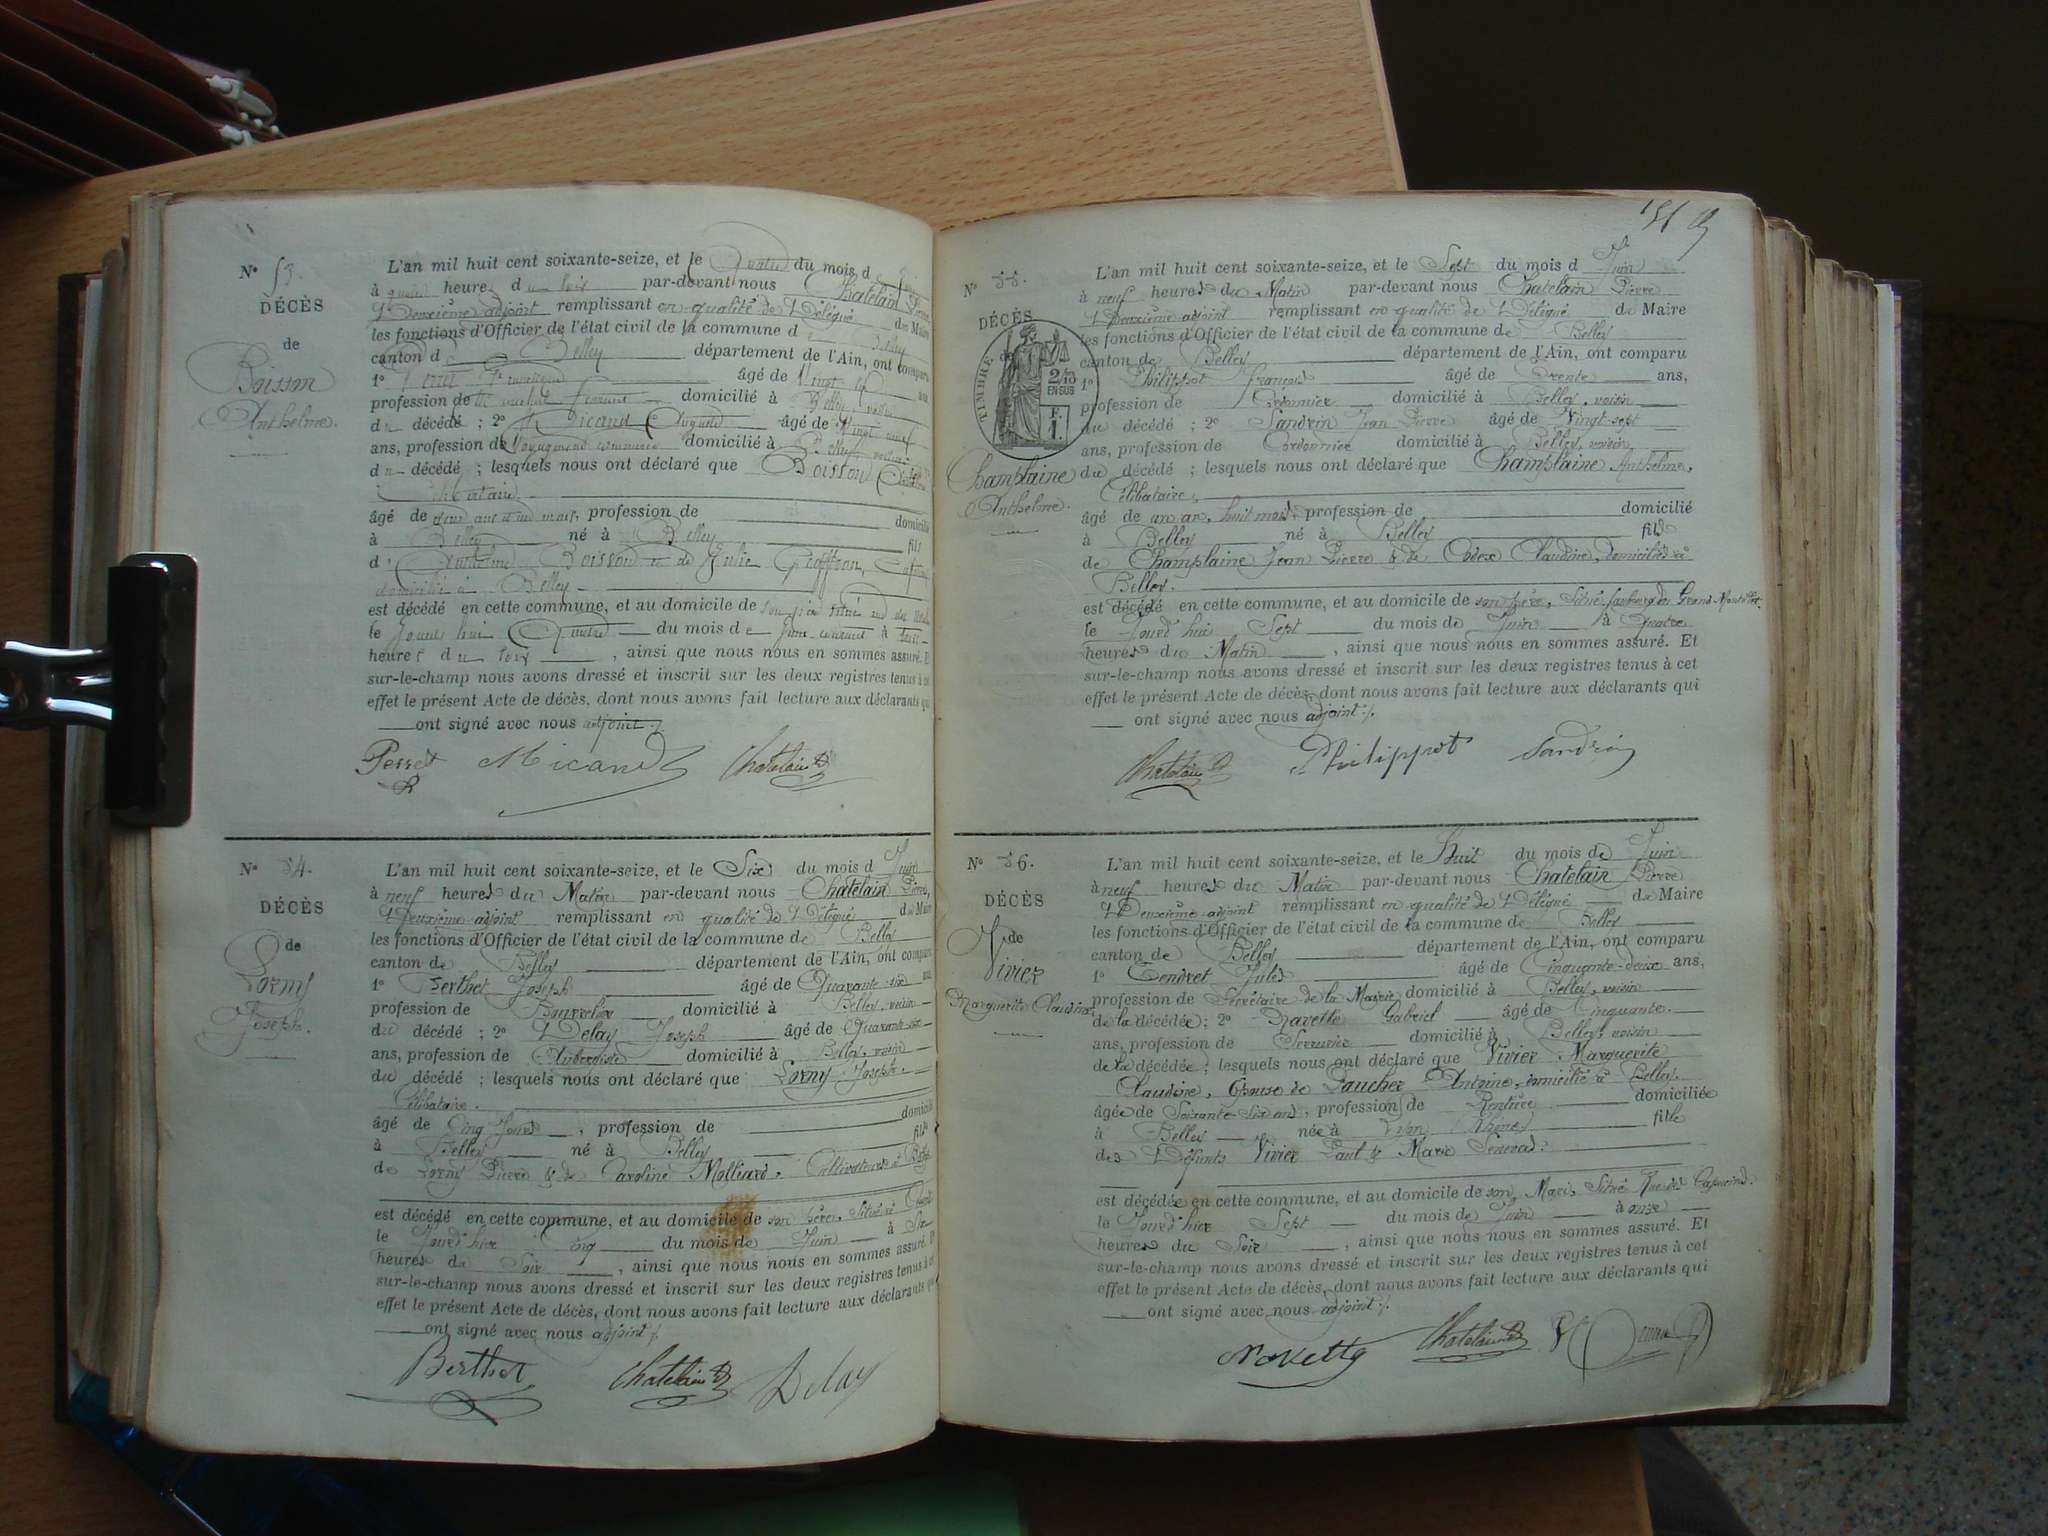 N° 53.
DÉCÈS
de
Boisson
Anthelme.
L'an mil huit cent soixante-seize, et le Quatre du mois d Juin
à heures du soir par-devant nous Chatelain Pierre
Deuxième adjoint remplissant en qualité de Délégué de Maire
les fonctions d'Officier de l'état civil de la commune de Belley
canton de Belley département de l'Ain, ont comparu
1° âgé de Vingt ans
profession de domicilié à Belley voisin
du décédé ; 2° Micand Auguste âgé de Vingt
ans, profession de domicilié à Belley voisin
du décédé ; lesquels nous ont déclaré que Boisson
Célibataire
âgé de mois, profession de domicilié
à Belley né à Belley fils
d' Anthelme Boisson et de Julie
domiciliés à Belley
est décédé en cette commune, et au domicile de son père situé
le Jourd'hui Quatre du mois de Juin courant à trois
heures du soir, ainsi que nous nous en sommes assuré. Et
sur-le-champ nous avons dressé et inscrit sur les deux registres tenus à cet
effet le présent Acte de décès, dont nous avons fait lecture aux déclarants qui
ont signé avec nous adjoint ./.
Perret Micand Chatelain P.
N° 54.
DÉCÈS
de
Lorny
Joseph.
L'an mil huit cent soixante-seize, et le Six du mois d Juin
à neuf heures du Matin par-devant nous Chatelain Pierre,
Deuxième adjoint remplissant en qualité de Délégué de Maire
les fonctions d'Officier de l'état civil de la commune de Belley
canton de Belley département de l'Ain, ont comparu
1° Berthet Joseph âgé de Quarante-six ans
profession de Bourrelier domicilié à Belley, voisin
du décédé ; 2° Delay Joseph âgé de Quarante-six
ans, profession de Aubergiste domicilié à Belley, voisin
du décédé ; lesquels nous ont déclaré que Lorny Joseph
Célibataire.
âgé de Cinq Jours, profession de domicilié
à Belley né à Belley fils
de Lorny Pierre & de Caroline Molliard, Cultivateurs à Belley
est décédé en cette commune, et au domicile de son père, Situé à
le Jourd'hier Cinq du mois de Juin à Six
heures du Soir, ainsi que nous nous en sommes assuré. Et
sur-le-champ nous avons dressé et inscrit sur les deux registres tenus à cet
effet le présent Acte de décès, dont nous avons fait lecture aux déclarants qui
ont signé avec nous adjoint ./.
Berthet Chatelain P. Delay
151
N° 55.
DÉCÈS
de
TIMBRE
2/10
EN SUS
F.
1.
Champlaine
Anthelme.
L'an mil huit cent soixante-seize, et le Sept du mois d Juin
à neuf heures du Matin par-devant nous Chatelain Pierre
Deuxième adjoint remplissant en qualité de Délégué de Maire
les fonctions d'Officier de l'état civil de la commune de Belley
canton de Belley département de l'Ain, ont comparu
1° Philippot François âgé de Trente ans,
profession de Cordonnier domicilié à Belley, voisin
du décédé ; 2° Sandrin Jean Pierre âgé de Vingt-sept
ans, profession de Cordonnier domicilié à Belley, voisin
du décédé ; lesquels nous ont déclaré que Champlaine Anthelme,
Célibataire,
âgé de un an, huit mois, profession de domicilié
à Belley né à Belley fils
de Champlaine Jean Pierre & de Claudine, domiciliés à
Belley.
est décédé en cette commune, et au domicile de son père, Situé faubourg du Grand
le Jourd'hui Sept du mois de Juin à Quatre
heures du Matin, ainsi que nous nous en sommes assuré. Et
sur-le-champ nous avons dressé et inscrit sur les deux registres tenus à cet
effet le présent Acte de décès, dont nous avons fait lecture aux déclarants qui
ont signé avec nous adjoint ./.
Chatelain P. Philippot Sandrin
N° 56.
DÉCÈS
de
Vivier
Marguerite Claudine
L'an mil huit cent soixante-seize, et le Huit du mois de Juin
à neuf heures du Matin par-devant nous Chatelain Pierre
Deuxième adjoint remplissant en qualité de Délégué de Maire
les fonctions d'Officier de l'état civil de la commune de Belley
canton de Belley département de l'Ain, ont comparu
1° Tendret Jules âgé de Cinquante-deux ans,
profession de Secrétaire de la Mairie domicilié à Belley, voisin
de la décédée ; 2° Gabriel âgé de Cinquante.
ans, profession de Serrurier domicilié à Belley, voisin
de la décédée ; lesquels nous ont déclaré que Vivier Marguerite
Claudine, Epouse de Antoine, domicilié à Belley.
âgée de Soixante six ans, profession de Rentière domiciliée
à Belley née à Lyon (Rhône) fille
des Défunts Vivier Paul & Marie
est décédée en cette commune, et au domicile de son Mari, Situé Rue des Capucins.
le Jourd'hier Sept du mois de Juin à onze
heures du Soir, ainsi que nous nous en sommes assuré. Et
sur-le-champ nous avons dressé et inscrit sur les deux registres tenus à cet
effet le présent Acte de décès, dont nous avons fait lecture aux déclarants qui
ont signé avec nous adjoint ./.
Chatelain P.